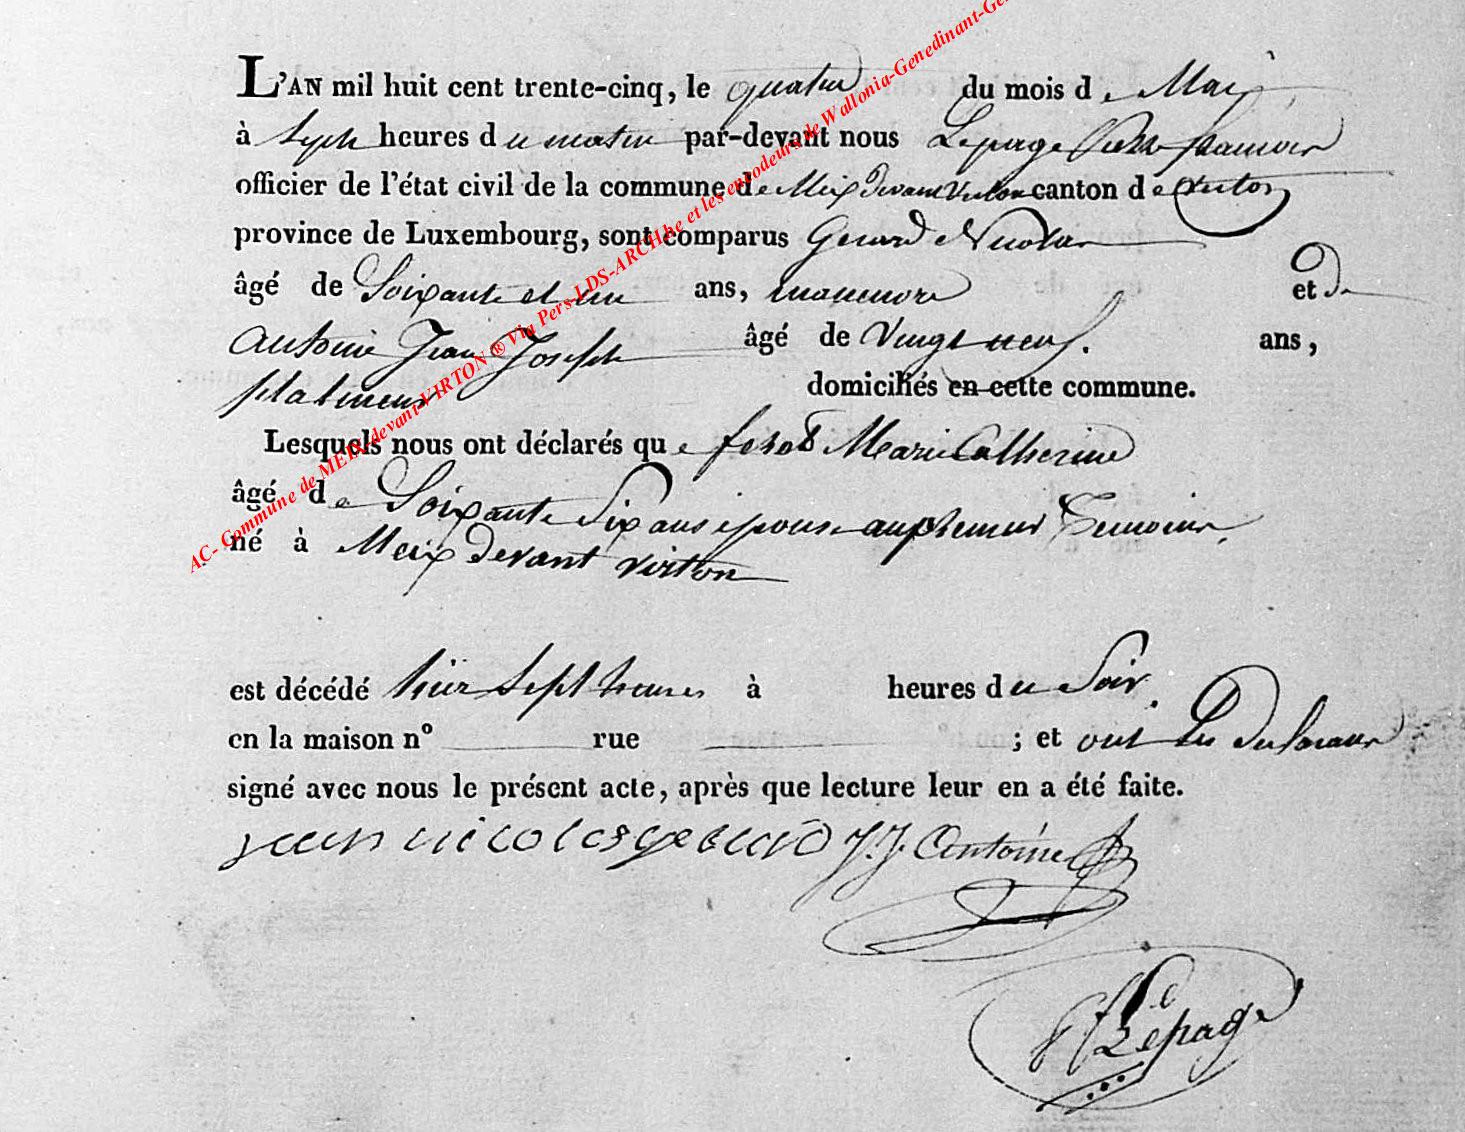 L'AN mil huit cent trente-cinq, le quatre du mois de Mai
à Sept heures du matin par-devant nous Lepage Pierre francois
officier de l'état civil de la commune de Meix devant Virton canton de Virton
province de Luxembourg, sont comparus Gerard Nicolas
âgé de Soixante et un ans, manœuvre et de
Antoine Jean Joseph âgé de Vingt neuf ans,
platineur domiciliés en cette commune.
Lesquels nous ont déclarés que Marie Catherine
âgé de Soixante Six ans epouse
né à Meix devant virton
est décédé hier Sept heures à heures du Soir
en la maison n° rue ; et ont les
signé avec nous le présent acte, après que lecture leur en a été faite.
jean nicolas gerard J. J. Antoine
Lepage
AC- Commune de MEIX-devant-VIRTON ® Via Pers-LDS-ARCHbe et les encodeurs de Wallonia-Genedinant-Ge